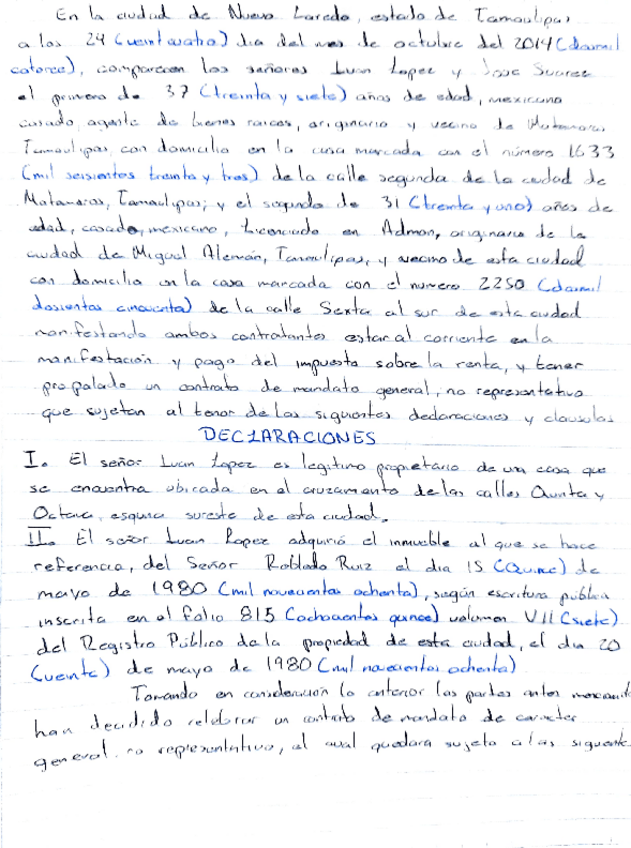 En la ciudad de Nuevo Laredo, estado de Tamaulipas
a los 24 (veinticuatro) dia del mes de octubre del 2014 (dosmil
catorce), comparecen los señores Luan Lopez y Jose Suarez
el primero de 37 (treinta y siete) años de edad, mexicano
casado, agente de bienes raices, originario y vecino de Matamoros
Tamaulipas, con domicilio en la casa marcada con el número 1633
(mil seisientos treinta y tres) de la calle segunda de la ciudad de
Matamoros, Tamaulipas; y el segundo de 31 (treinta y uno) años de
edad, casado, mexicano, Licenciado en Admon, originario de la
ciudad de Miguel Alemán, Tamaulipas, y vecino de esta ciudad
con domicilio en la casa marcada con el numero 2250 (dosmil
dosientos cincuenta) de la calle Sexta al sur de esta ciudad
manifestando ambos contratantes estar al corriente en la
manifestación y pago del impuesto sobre la renta, y tener
propalado un contrato de mandato general, no representativo
que sujetan al tenor de las siguientes declaraciones y clausulas
DECLARACIONES
I. El señor Luan Lopez es legitimo propietario de una casa que
se encuentra ubicada en el cruzamiento de las calles Quinta y
Octava, esquina sureste de esta ciudad.
II. El señor Luan Lopez adquirió el inmueble al que se hace
referencia, del Señor Robledo Ruiz el dia 15 (Quince) de
mayo de 1980 (mil novecientos ochenta), según escritura pública
inscrita en el folio 815 (ochocientos quince) volumen VII (siete)
del Registro Público de la propiedad de esta ciudad, el dia 20
(veinte) de mayo de 1980 (mil novecientos ochenta)
Tomando en consideración lo anterior las partes antes
han decidido celebrar un contrato de mandato de caracter
general. no representativo, el cual quedara sujeto a las siguiente